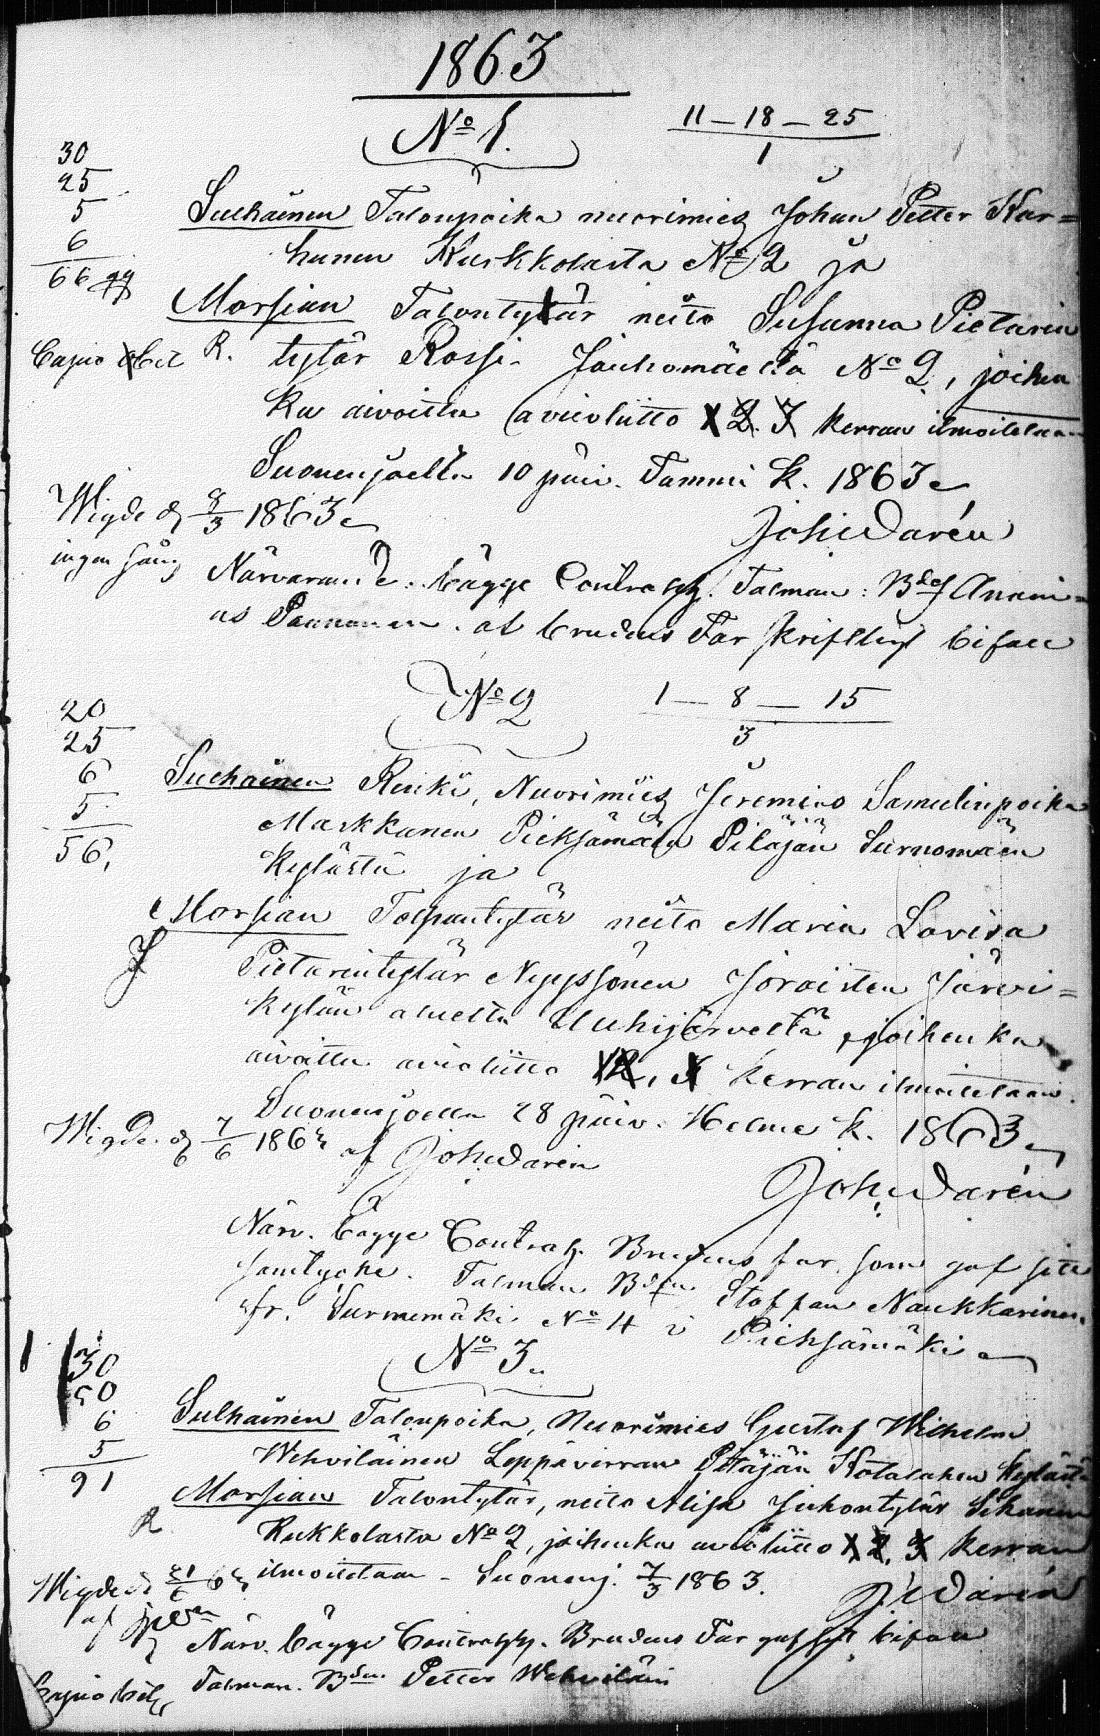 1863
No 1.
11 – 18 – 25
1
30
25
5
6
66
Sulhainen Talonpoika nuorimies Johan Petter Kar=
hunen Kurkkolasta No 2 ja
Morsian Talontytär neito Susanna Pietarin
R. tytär Rossi Jauhomäeltä No 2, joihen
ka aivottu avioliitto 1 2. 3 kerran ilmoitetaan
Suonenjoella 10 päiv. Tammi k. 1863
Joh. Darén
Wigde d 8/3 1863
ingen gång
Närvarande. bägge Contrah. Talman: Bdn Anani=
as Pannanen. at brudens Far skriftligt bifall
No 2
1 – 8 – 15
3
20
25
6
5
56,
Sulhainen Renki, Nuorimies Jeremias Samulinpoika
Markkanen Pieksämän Pitäjän Surnomäen
Kylästä ja
Morsian neito Maria Lovisa
Pietarintytär Nyyssönen Joroisten Järvi=
kylän aluelta, joihenka
aivottu avioliitto 1 2, 3 kerran ilmoitetaan.
Suonenjoella 28 päiv. Helmi k. 1863
Wigde d 7/6 1863 af Joh. Darén
Joh. Darén
Närv. bägge Contrah. Brudens far, som gaf sitt
samtycke. Talman Bdn Staffan Naukkarinen
fr. Surnumäki No 4 i Pieksämäki
No 3.
30
50
6
5
91
Sulhainen Talonpoika, Nuorimies Gustaf Wilhelm
Wehviläinen Leppävirran Pitäjän Kotalahen kylästä
Morsian Talontytär, neito Juhontytär
R
No 2, joihenka avioliitto 1 2, 3 kerran
ilmoitetaan – Suonenj. 7/3 1863.
J Darén
Wigde d 21/6 63
af
Närv. bägge Contrah. Brudens Far gaf sitt bifall
Talman. Bdn Petter Wehviläin